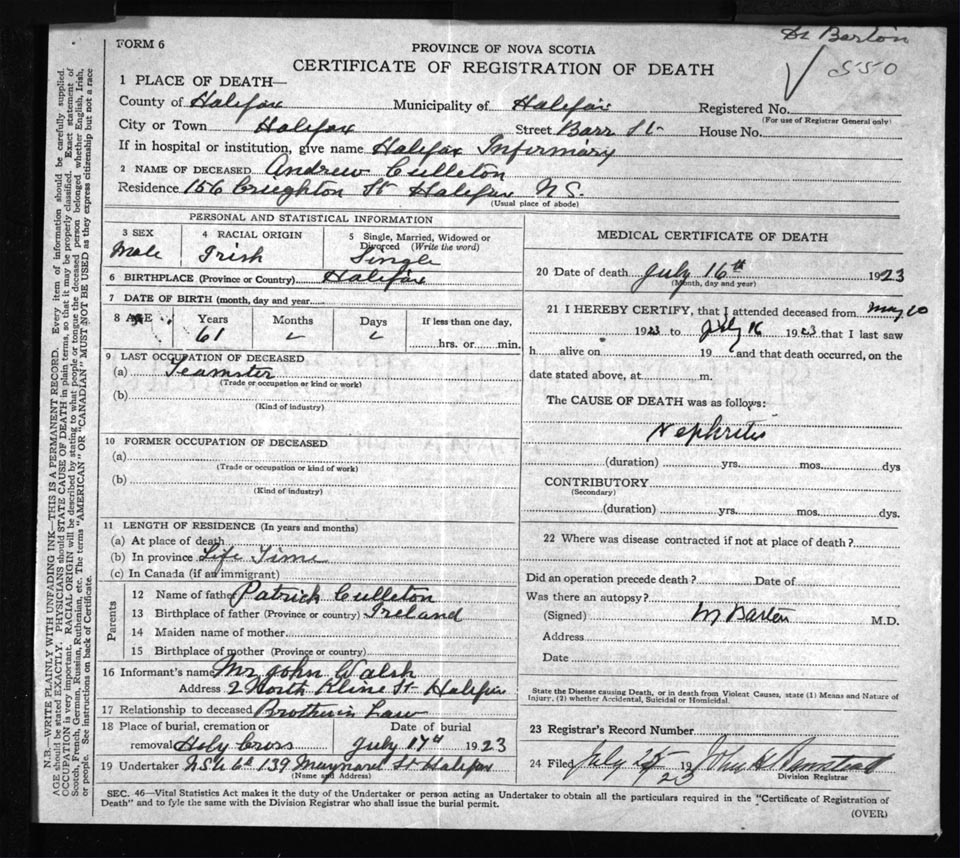 Dr Barton
550
FORM 6
PROVINCE OF NOVA SCOTIA
CERTIFICATE OF REGISTRATION OF DEATH
1 PLACE OF DEATH—
County of Halifax Municipality of Halifax Registered No.
(For use of Registrar General only)
City or Town Halifax Street Barr St- House No.
If in hospital or institution, give name Halifax Infirmary
2 NAME OF DECEASED Andrew Culleton
Residence 156 Creighton St Halifax N.S.
(Usual place of abode)
PERSONAL AND STATISTICAL INFORMATION
3 SEX 4 RACIAL ORIGIN 5 Single, Married, Widowed or
Divorced (Write the word)
Male Irish Single
6 BIRTHPLACE (Province or Country) Halifax
7 DATE OF BIRTH (month, day and year)
8 AGE Years Months Days If less than one day,
61 hrs. or min.
9 LAST OCCUPATION OF DECEASED
(a) Teamster
(Trade or occupation or kind or work)
(b)
(Kind of industry)
10 FORMER OCCUPATION OF DECEASED
(a)
(Trade or occupation or kind of work)
(b)
(Kind of industry)
11 LENGTH OF RESIDENCE (In years and months)
(a) At place of death
(b) In province Life Time
(c) In Canada (if an immigrant)
Parents
12 Name of father Patrick Culleton
13 Birthplace of father (Province or country) Ireland
14 Maiden name of mother
15 Birthplace of mother (Province or Country)
16 Informant's name Mr John Walsh
Address 2 North Kline St Halifax
17 Relationship to deceased Brother in Law
18 Place of burial, cremation or Date of burial
removal Holy Cross July 17th 1923
19 Undertaker N.S.U Co 139 Maynard St Halifax
(Name and Address)
MEDICAL CERTIFICATE OF DEATH
20 Date of death July 16th 1923
(Month, day and year)
21 I HEREBY CERTIFY, that I attended deceased from May 10
1923 to July 16 1923 that I last saw
h alive on 19 and that death occurred, on the
date stated above, at m.
The CAUSE OF DEATH was as follows:
Nephritis
(duration) yrs. mos. dys
CONTRIBUTORY
(Secondary)
(duration) yrs. mos. dys.
22 Where was disease contracted if not at place of death?
Did an operation precede death? Date of
Was there an autopsy?
(Signed) M Barton M.D.
Address
Date
State the Disease causing Death, or in death from Violent Causes, state (1) Means and Nature of
Injury, (2) whether Accidental, Suicidal or Homicidal.
23 Registrar's Record Number
24 Filed July 25 1923 John H
Division Registrar
SEC. 46—Vital Statistics Act makes it the duty of the Undertaker or person acting as Undertaker to obtain all the particulars required in the "Certificate of Registration of
Death" and to fyle the same with the Division Registrar who shall issue the burial permit.
(OVER)
N.B.—WRITE PLAINLY WITH UNFADING INK—THIS IS A PERMANENT RECORD. Every item of information should be carefully supplied.
AGE should be stated EXACTLY. PHYSICIANS should STATE CAUSE OF DEATH in plain terms, so that it may be properly classified. Exact statement of
OCCUPATION is very important. RACIAL ORIGIN will be described by stating to what people or tongue the deceased person belonged whether English, Irish,
Scotch, French, German, Russian, Ruthenian, etc. The terms "AMERICAN" OR "CANADIAN" MUST NOT BE USED as they express citizenship but not a race
or people. See instructions on back of Certificate.